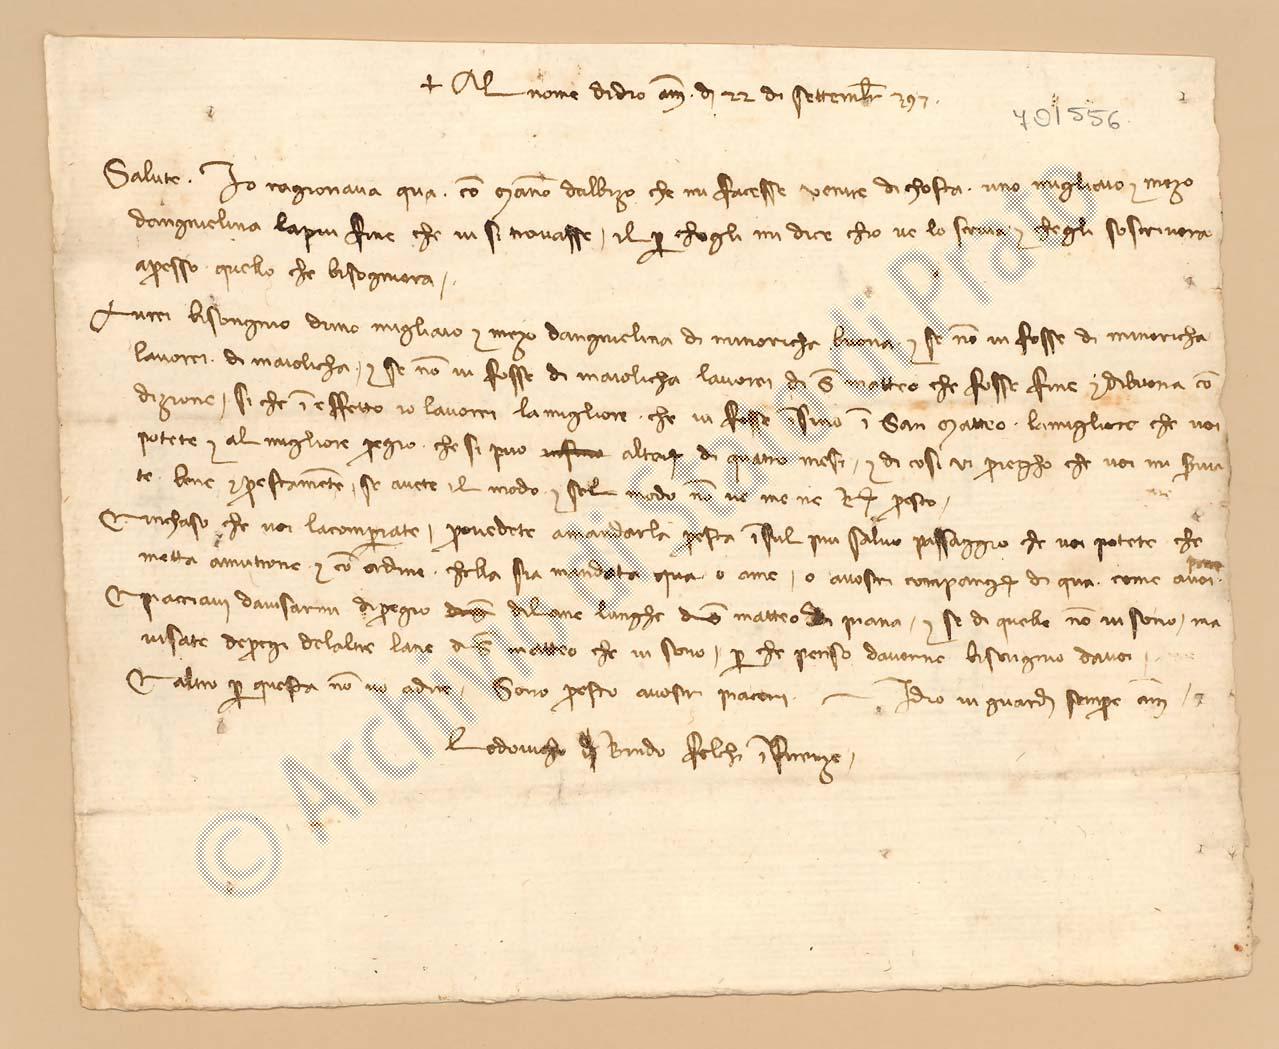 + Al nome didio am. dì 22 di settembr 397.
701556
Salute. Io ragionava qua. cō Manno dalbizo che mi facesse venire di chosta. uno migliaio e mezo
dangnielina la piu fine che vi si trovasse, il per chegli mi dice chio ve lo scriva e chegli soscrivera
apresso quello che bisogniera,
Avrei bisongnio duno migliaio e mezo dangnielina di minoricha buona e se nō vi fosse di minoricha
lavorrei di maiolicha, e se nō vi fosse di maiolicha lavorrei di S matteo che fosse fine e di buona cō
dizione, si che ī effetto io lavorrei la migliore. che vi fosse īsino ī San Matteo. la migliore che voi
potete e al migliore pregio. che si puo altermine di quatro mesi, e di cosi vi priegho che voi mi servia
te. bene e prestamēte, se avete il modo e sel modo nō ve me ne Rispondete presto,
E inchaso che voi lacomperiate, provedete amandarla presta īsul piu salvo passaggio che voi potete che
metta amutrone e cō ordine. chella sia mandata qua o ame, o avostri compangni di qua. come avoi. pare
E piacciavi davisarmi di pregio dilane lunghe di S matteo di piana, e se di quelle nō vi sono, ma
visate depregi delaltre lane di S matteo che vi sono, per che penso daverne bisongnio davoi,
E altro per questa nō vo adire, Sono presto avostri piaceri. Idio vi guardi sempre am,
Lodovicho di Bindo felchi īfirenze,
© Archivio di Stato di Prato